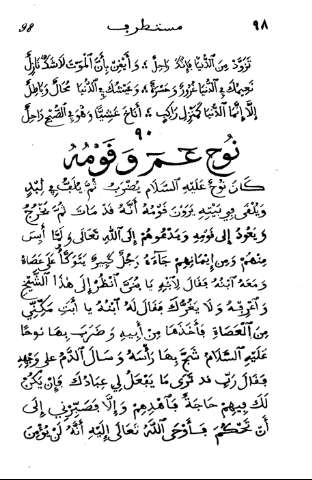 98 مستطرف ٩٨
تَزَوَّدْ مِنَ الدُّنْيَا فَإِنَّكَ رَاحِلُ ؛ وَأَيْقِنْ بِأَنَّ الْمَوْتَ لَا شَكَّ نَازِلُ
نَعِيمُكَ فِي الدُّنْيَا غُرُورٌ وَحَسْرَةٌ ؛ وَعَيْشُكَ فِي الدُّنْيَا مُحَالٌ وَبَاطِلُ
إِلَّا إِنَّمَا الدُّنْيَا كَمَنْزِلِ رَاكِبٍ ؛ أَنَاخَ عَشِيًّا وَهُوَ فِي الصُّبْحِ رَاحِلُ
٩٠
نُوحٌ عم وَقَوْمُهُ
كَانَ نُوحٌ عَلَيْهِ السَّلَامُ يُضْرَبُ ثُمَّ يُلَفُّ فِي لِبْدٍ
وَيُلْقَى فِي بَيْتِهِ يَرَوْنَ قَوْمُهُ أَنَّهُ قَدْ مَاتَ ثُمَّ يَخْرُجُ
وَيَعُودُ إِلَى قَوْمِهِ وَيَدْعُوهُمْ إِلَى اللهِ تَعَالَى وَلَمَّا أَيِسَ
مِنْهُمْ وَمِنْ إِيمَانِهِمْ جَاءَهُ رَجُلٌ كَبِيرٌ يَتَوَكَّأُ عَلَى عَصَاهُ
وَمَعَهُ ابْنُهُ فَقَالَ لِابْنِهِ يَا بُنَيَّ انْظُرْ إِلَى هَذَا الشَّيْخِ
وَاعْرِفْهُ وَلَا يَغُرَّكَ فَقَالَ لَهُ ابْنُهُ يَا أَبَتِ مَكِّنِّي
مِنَ الْعَصَاةِ فَأَخَذَهَا مِنْ أَبِيهِ وَضَرَبَ بِهَا نُوحًا
عَلَيْهِ السَّلَامُ شَجَّ بِهَا رَأْسَهُ وَسَالَ الدَّمُ عَلَى وَجْهِهِ
فَقَالَ رَبِّ قَدْ تَرَى مَا يَفْعَلُ بِي عِبَادُكَ فَإِنْ يَكُنْ
لَكَ فِيهِمْ حَاجَةٌ فَاهْدِهِمْ وَإِلَّا فَصَبِّرْنِي إِلَى
أَنْ تَحْكُمَ فَأَوْحَى اللهُ تَعَالَى إِلَيْهِ أَنَّهُ لَنْ يُؤْمِنَ